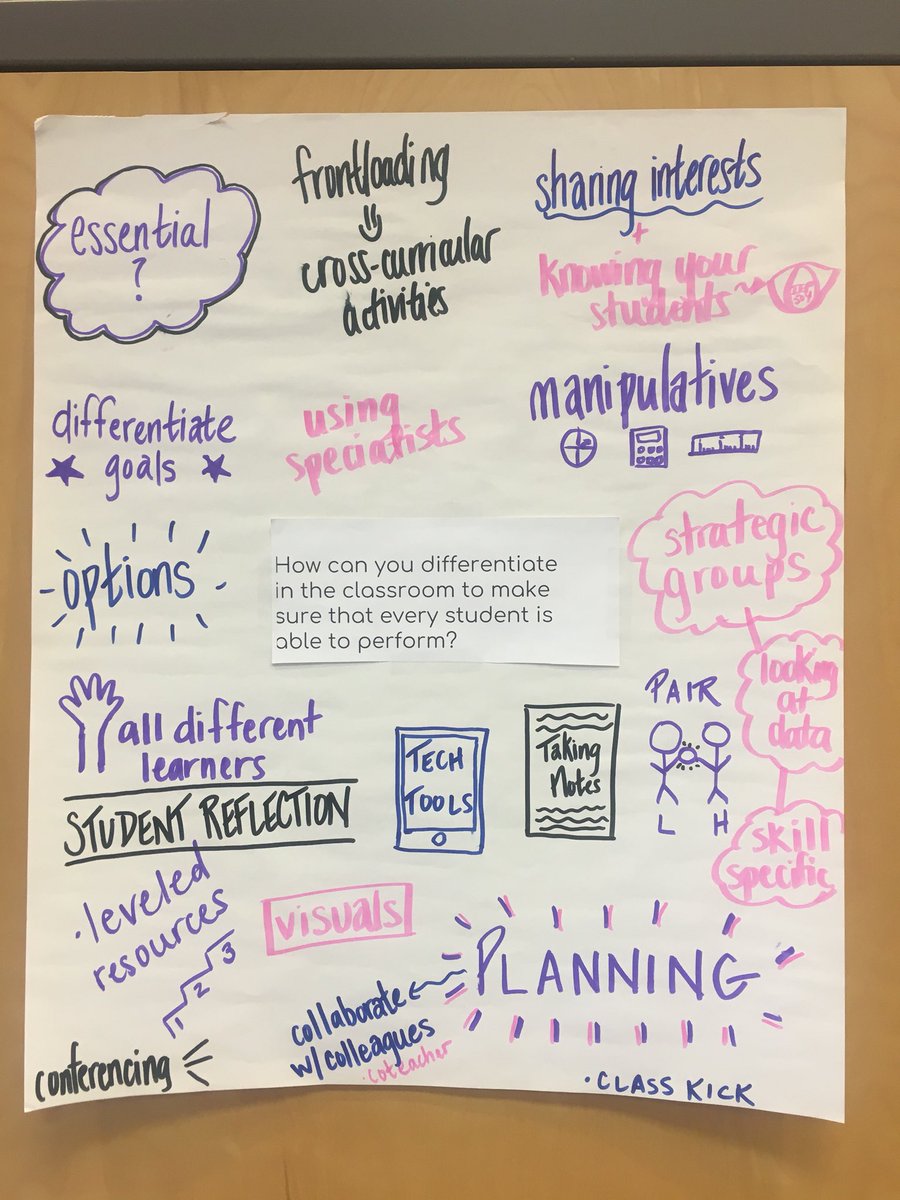 essential
?
frontloading
cross-curricular
activities
sharing interests
+
knowing your
students
differentiate
goals
using
specialists
manipulatives
options
How can you differentiate
in the classroom to make
sure that every student is
able to perform?
strategic
groups
looking
at
data
skill
specific
all different
learners
STUDENT REFLECTION
TECH
TOOLS
Taking
Notes
PAIR
L H
• leveled
resources
1 2 3
visuals
PLANNING
collaborate
w/colleagues
• coteacher
conferencing
• CLASS KICK